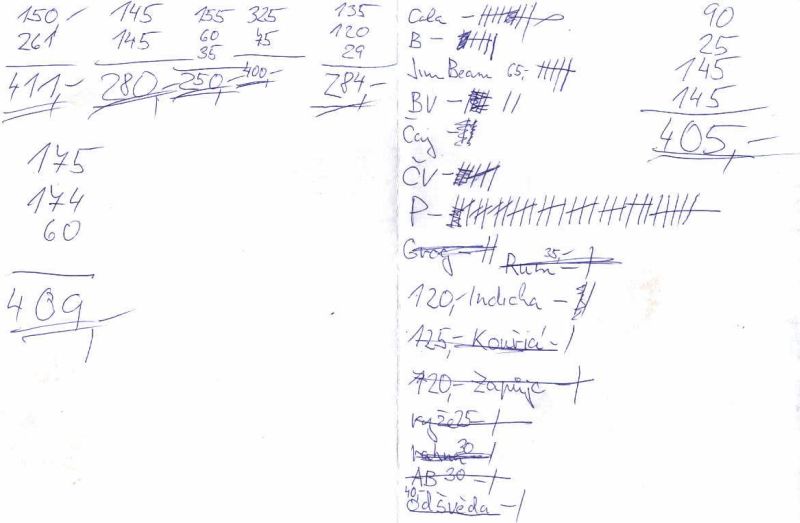 150,-
261
411,-
145
145
280,-
155
60
35
250,-
325
75
400,-
135
120
29
284,-
175
174
60
409
Cola -
B -
Jim Beam 65,-
BV -
Čaj -
ČV -
P -
Grog -
Rum 35,- -
120,- Indicka -
125,-
720,- Zapůjč -
25 -
30
AB 30 -
40,-
90
25
145
145
405,-